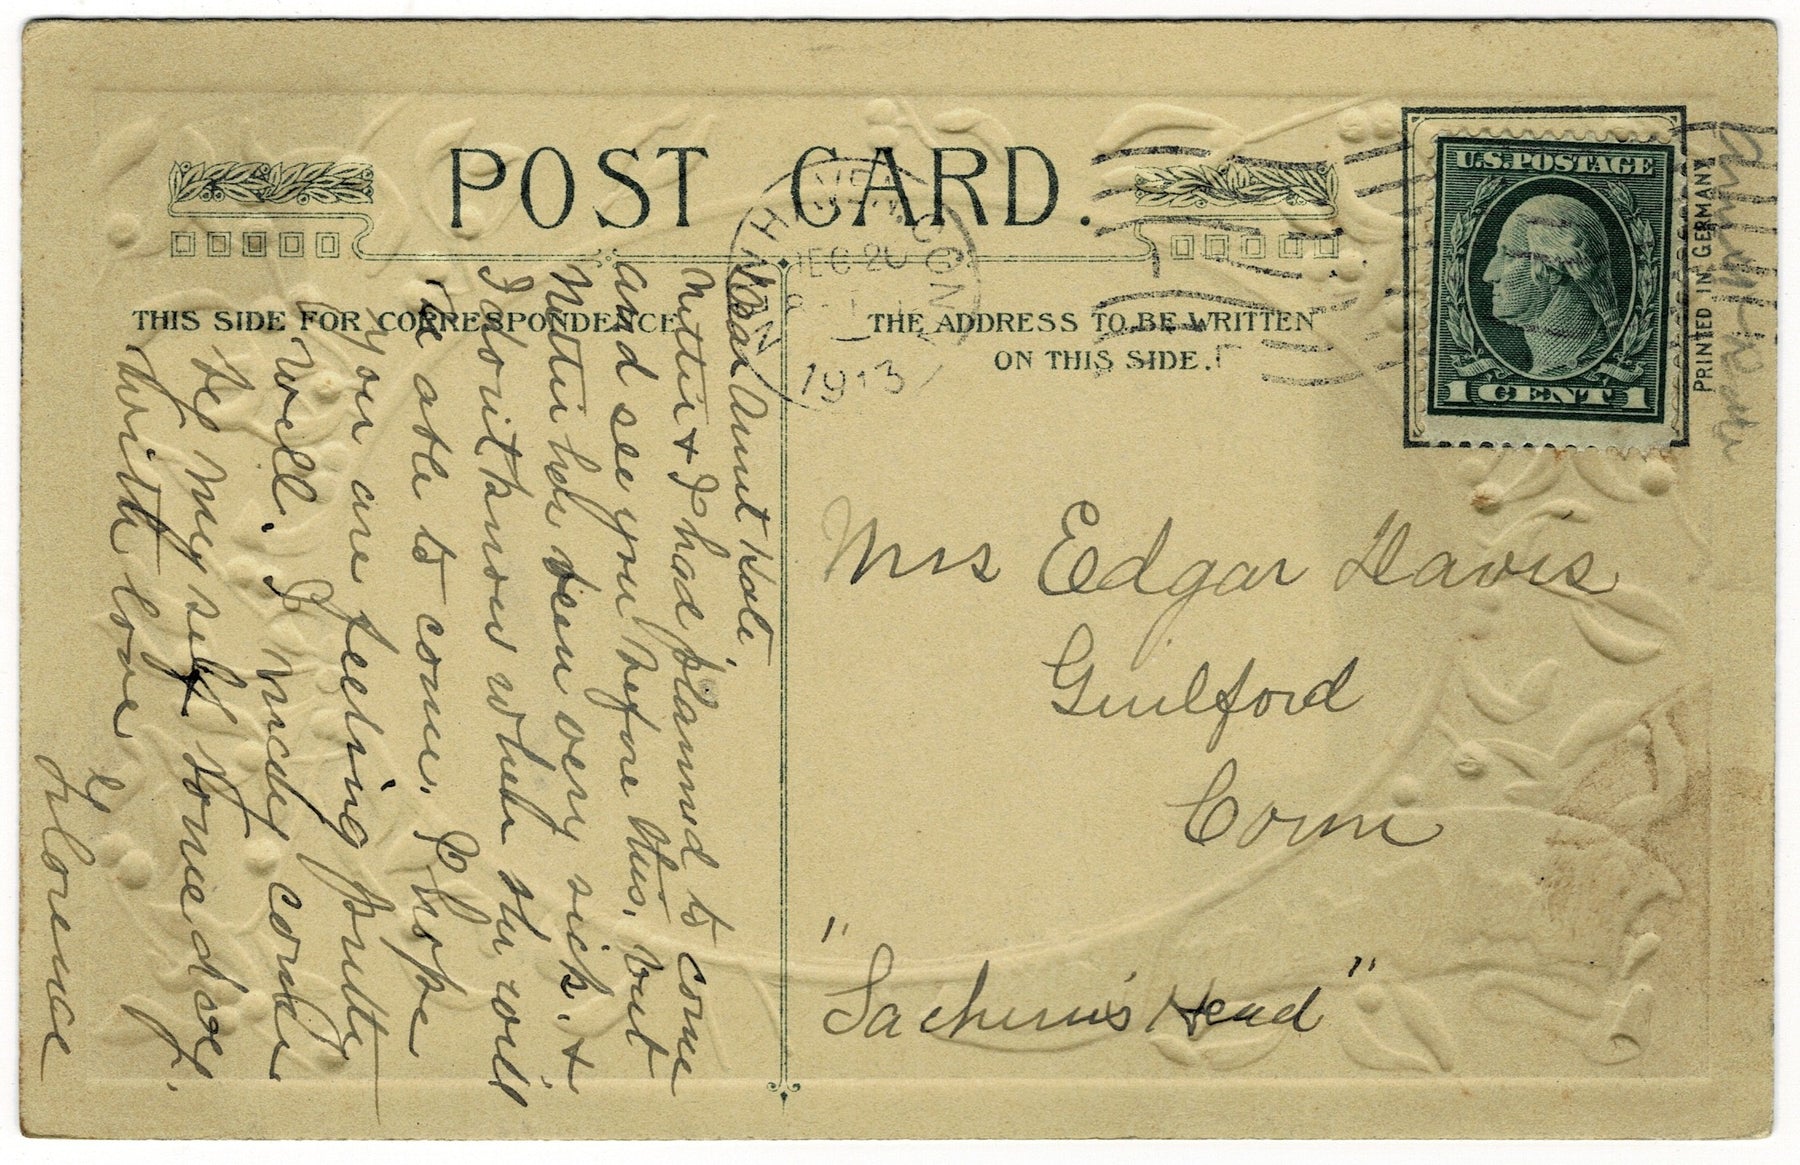 POST CARD.
THIS SIDE FOR CORRESPONDENCE
THE ADDRESS TO BE WRITTEN
ON THIS SIDE.
U.S. POSTAGE
1 CENT 1
PRINTED IN GERMANY
HAVEN, CONN
DEC 20
1913
Dear Aunt Kate,
Nettie + I had planned to come
and see you before this, but
Nettie has been very sick. +
I don't know when she will
be able to come. I hope
you are feeling pretty
well. I may come
by my self some day.
With love
Florence
Mrs Edgar Davis
Guilford
Conn
"Sachem's Head"